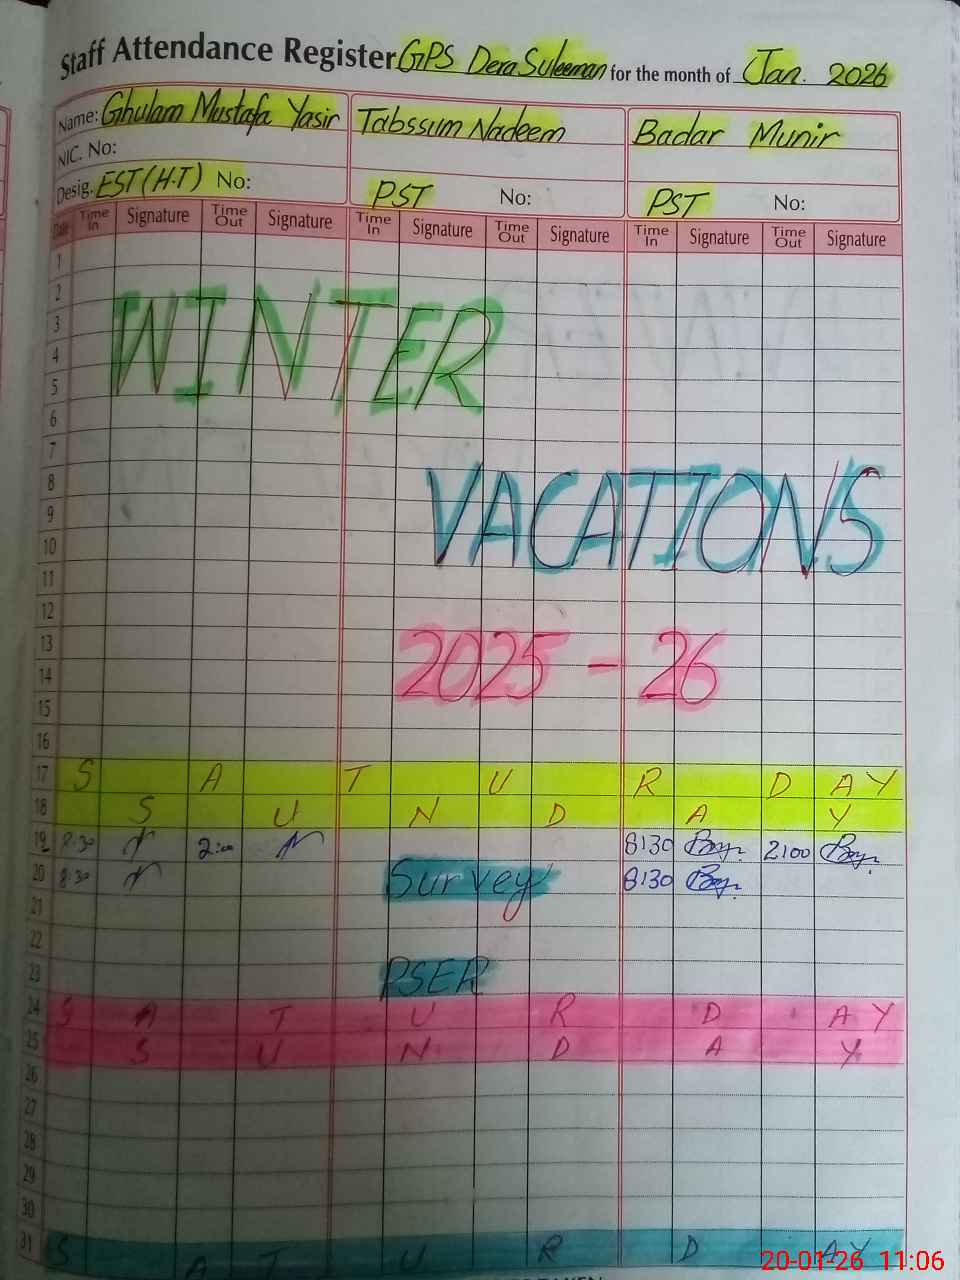 Staff Attendance Register GPS Dera Suleeman for the month of Jan. 2026
Name: Ghulam Mustafa Yasir Tabssum Nadeem Badar Munir
NIC. No:
Desig. EST (H.T) No: PST No: PST No:
Date Time In Signature Time Out Signature Time In Signature Time Out Signature Time In Signature Time Out Signature
1
2
3
WINTER
4
5
6
7
8
9
VACATIONS
10
11
12
13
14
2025 - 26
15
16
17 SATURDAY
18 SUNDAY
19 8:30 2:00 8:30 2:00
20 8:30 Survey 8:30
21
22
23 PSER
24 SATURDAY
25 SUNDAY
26
27
28
29
30
31 SATURDAY
20-01-26 11:06